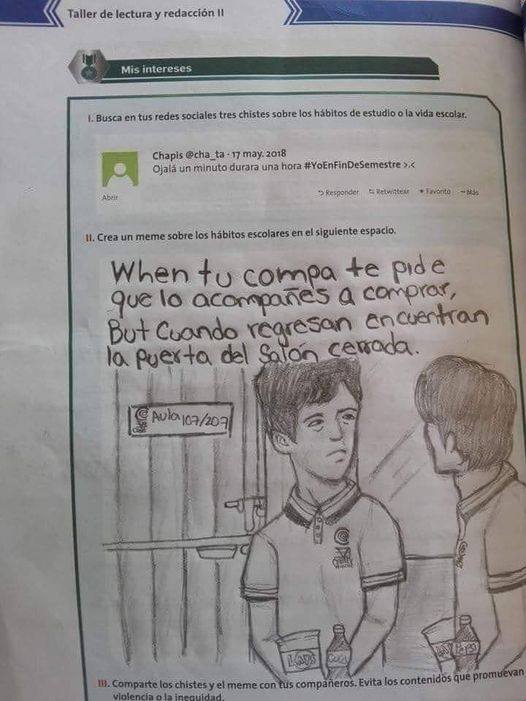 Taller de lectura y redacción II
Mis intereses
I. Busca en tus redes sociales tres chistes sobre los hábitos de estudio o la vida escolar.
Chapis @cha_ta · 17 may. 2018
Ojalá un minuto durara una hora #YoEnFinDeSemestre >.<
Abrir
Responder Retwittear Favorito Más
II. Crea un meme sobre los hábitos escolares en el siguiente espacio.
When tu compa te pide
que lo acompañes a comprar,
But Cuando regresan encuentran
la puerta del salón cerrada.
Aula 107/207
III. Comparte los chistes y el meme con tus compañeros. Evita los contenidos que promuevan
violencia o la inequidad.